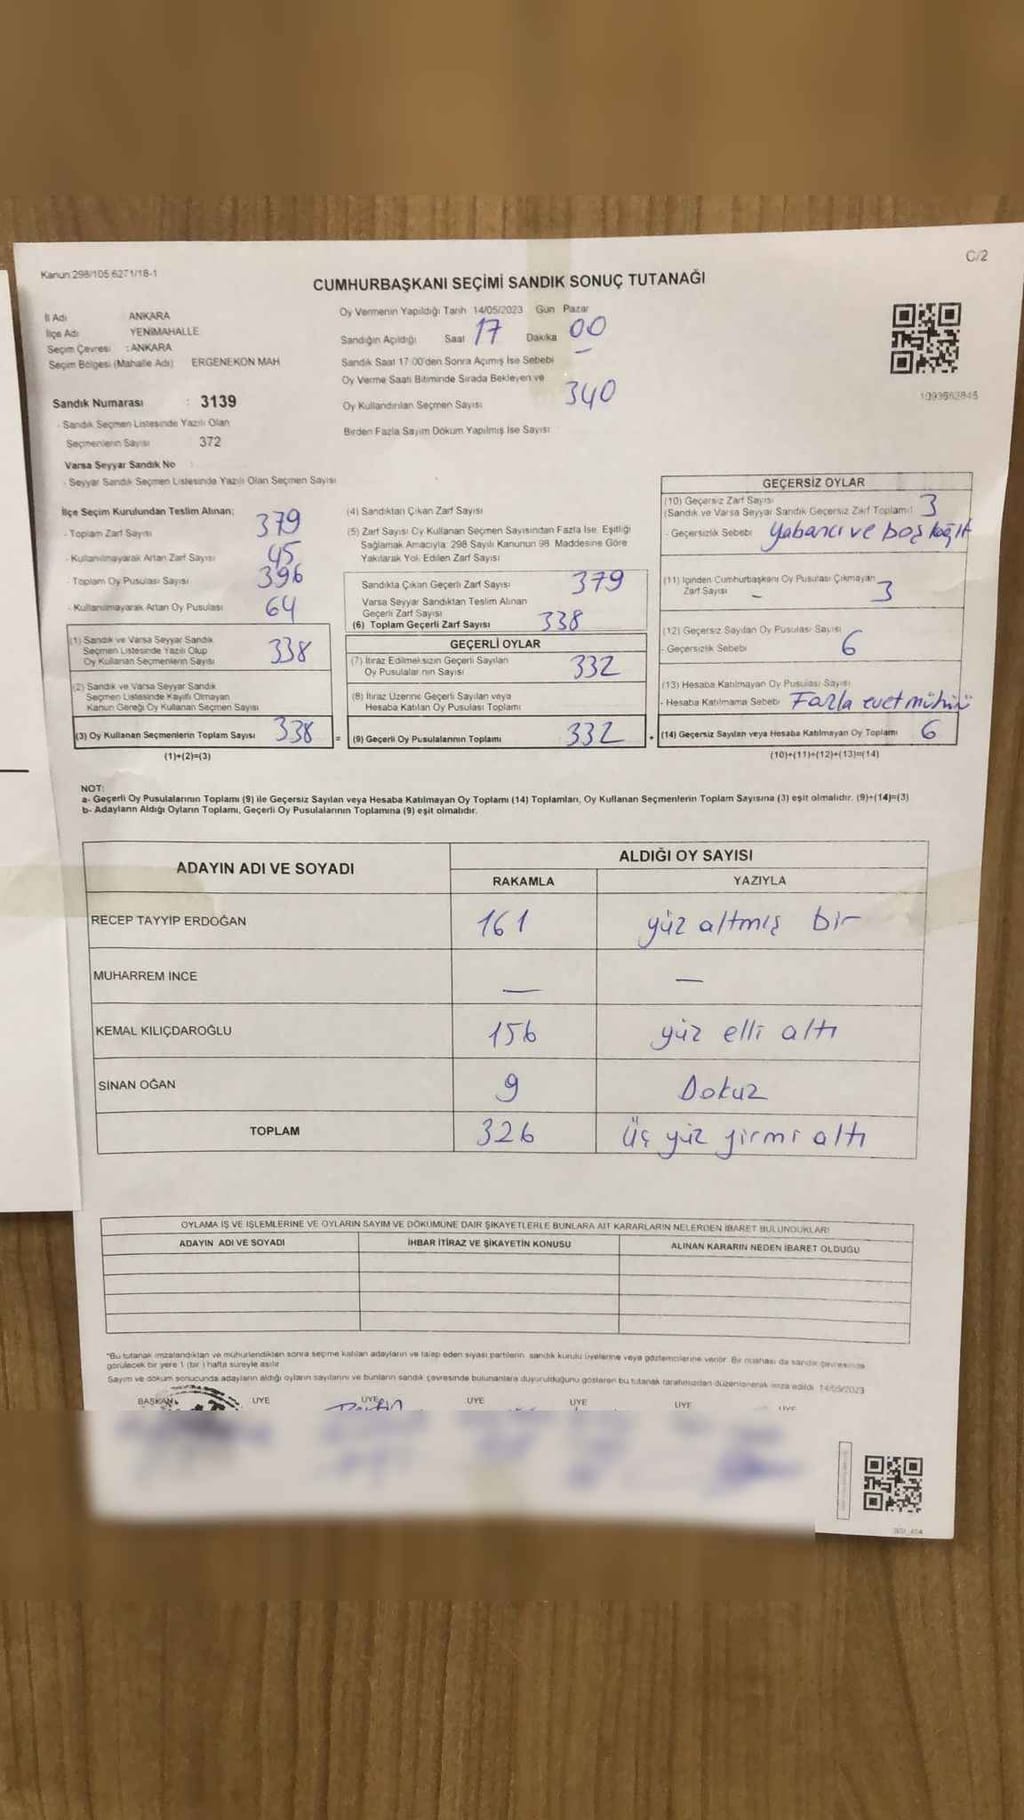 C/2
Kanun 298/105 6271/18-1
CUMHURBAŞKANI SEÇİMİ SANDIK SONUÇ TUTANAĞI
İl Adı ANKARA
İlçe Adı YENİMAHALLE
Seçim Çevresi : ANKARA
Seçim Bölgesi (Mahalle Adı) ERGENEKON MAH
Sandık Numarası : 3139
- Sandık Seçmen Listesinde Yazılı Olan
Seçmenlerin Sayısı 372
Varsa Seyyar Sandık No
- Seyyar Sandık Seçmen Listesinde Yazılı Olan Seçmen Sayısı
Oy Vermenin Yapıldığı Tarih 14/05/2023 Gün Pazar
Sandığın Açıldığı Saat 17 Dakika 00
Sandık Saat 17:00'den Sonra Açımış İse Sebebi —
Oy Verme Saati Bitiminde Sırada Bekleyen ve
Oy Kullandırılan Seçmen Sayısı 340
Birden Fazla Sayım Döküm Yapılmış İse Sayısı
1093563845
İlçe Seçim Kurulundan Teslim Alınan;
- Toplam Zarf Sayısı 379
- Kullanılmayarak Artan Zarf Sayısı 45
- Toplam Oy Pusulası Sayısı 396
- Kullanılmayarak Artan Oy Pusulası 64
(1) Sandık ve Varsa Seyyar Sandık
Seçmen Listesinde Yazılı Olup
Oy Kullanan Seçmenlerin Sayısı 338
(2) Sandık ve Varsa Seyyar Sandık
Seçmen Listesinde Kayıtlı Olmayan
Kanun Gereği Oy Kullanan Seçmen Sayısı
(3) Oy Kullanan Seçmenlerin Toplam Sayısı 338
(1)+(2)=(3)
(4) Sandıktan Çıkan Zarf Sayısı
(5) Zarf Sayısı Oy Kullanan Seçmen Sayısından Fazla İse, Eşitliği
Sağlamak Amacıyla 298 Sayılı Kanunun 98. Maddesine Göre
Yakılarak Yok Edilen Zarf Sayısı
Sandıkta Çıkan Geçerli Zarf Sayısı 379
Varsa Seyyar Sandıktan Teslim Alınan
Geçerli Zarf Sayısı
(6) Toplam Geçerli Zarf Sayısı 338
GEÇERLİ OYLAR
(7) İtiraz Edilmeksizin Geçerli Sayılan
Oy Pusulalarının Sayısı 332
(8) İtiraz Üzerine Geçerli Sayılan veya
Hesaba Katılan Oy Pusulası Toplamı
= (9) Geçerli Oy Pusulalarının Toplamı 332
GEÇERSİZ OYLAR
(10) Geçersiz Zarf Sayısı
(Sandık ve Varsa Seyyar Sandık Geçersiz Zarf Toplamı) 3
- Geçersizlik Sebebi Yabancı ve boş kağıt
(11) İçinden Cumhurbaşkanı Oy Pusulası Çıkmayan
Zarf Sayısı - 3
(12) Geçersiz Sayılan Oy Pusulası Sayısı
- Geçersizlik Sebebi 6
(13) Hesaba Katılmayan Oy Pusulası Sayısı
- Hesaba Katılmama Sebebi Fazla evet mührü
+ (14) Geçersiz Sayılan veya Hesaba Katılmayan Oy Toplamı 6
(10)+(11)+(12)+(13)=(14)
NOT:
a- Geçerli Oy Pusulalarının Toplamı (9) ile Geçersiz Sayılan veya Hesaba Katılmayan Oy Toplamı (14) Toplamları, Oy Kullanan Seçmenlerin Toplam Sayısına (3) eşit olmalıdır. (9)+(14)=(3)
b- Adayların Aldığı Oyların Toplamı, Geçerli Oy Pusulalarının Toplamına (9) eşit olmalıdır.
ADAYIN ADI VE SOYADI ALDIĞI OY SAYISI
RAKAMLA YAZIYLA
RECEP TAYYİP ERDOĞAN 161 yüz altmış bir
MUHARREM İNCE — —
KEMAL KILIÇDAROĞLU 156 yüz elli altı
SİNAN OĞAN 9 Dokuz
TOPLAM 326 Üç yüz yirmi altı
OYLAMA İŞ VE İŞLEMLERİNE VE OYLARIN SAYIM VE DÖKÜMÜNE DAİR ŞİKAYETLERLE BUNLARA AİT KARARLARIN NELERDEN İBARET BULUNDUKLARI
ADAYIN ADI VE SOYADI İHBAR İTİRAZ VE ŞİKAYETİN KONUSU ALINAN KARARIN NEDEN İBARET OLDUĞU
"Bu tutanak imzalandıktan ve mühürlendikten sonra seçime katılan adayların ve talep eden siyasi partilerin sandık kurulu üyelerine veya gözlemcilerine verilir. Bir nüshası da sandık çevresinde
görülecek bir yere 1 (bir) hafta süreyle asılır
Sayım ve döküm sonucunda adayların aldığı oyların sayılarını ve bunların sandık çevresinde bulunanlara duyurulduğunu gösteren bu tutanak tarafımızdan düzenlenerek imza edildi. 14/05/2023
BAŞKAN ÜYE ÜYE ÜYE ÜYE ÜYE ÜYE